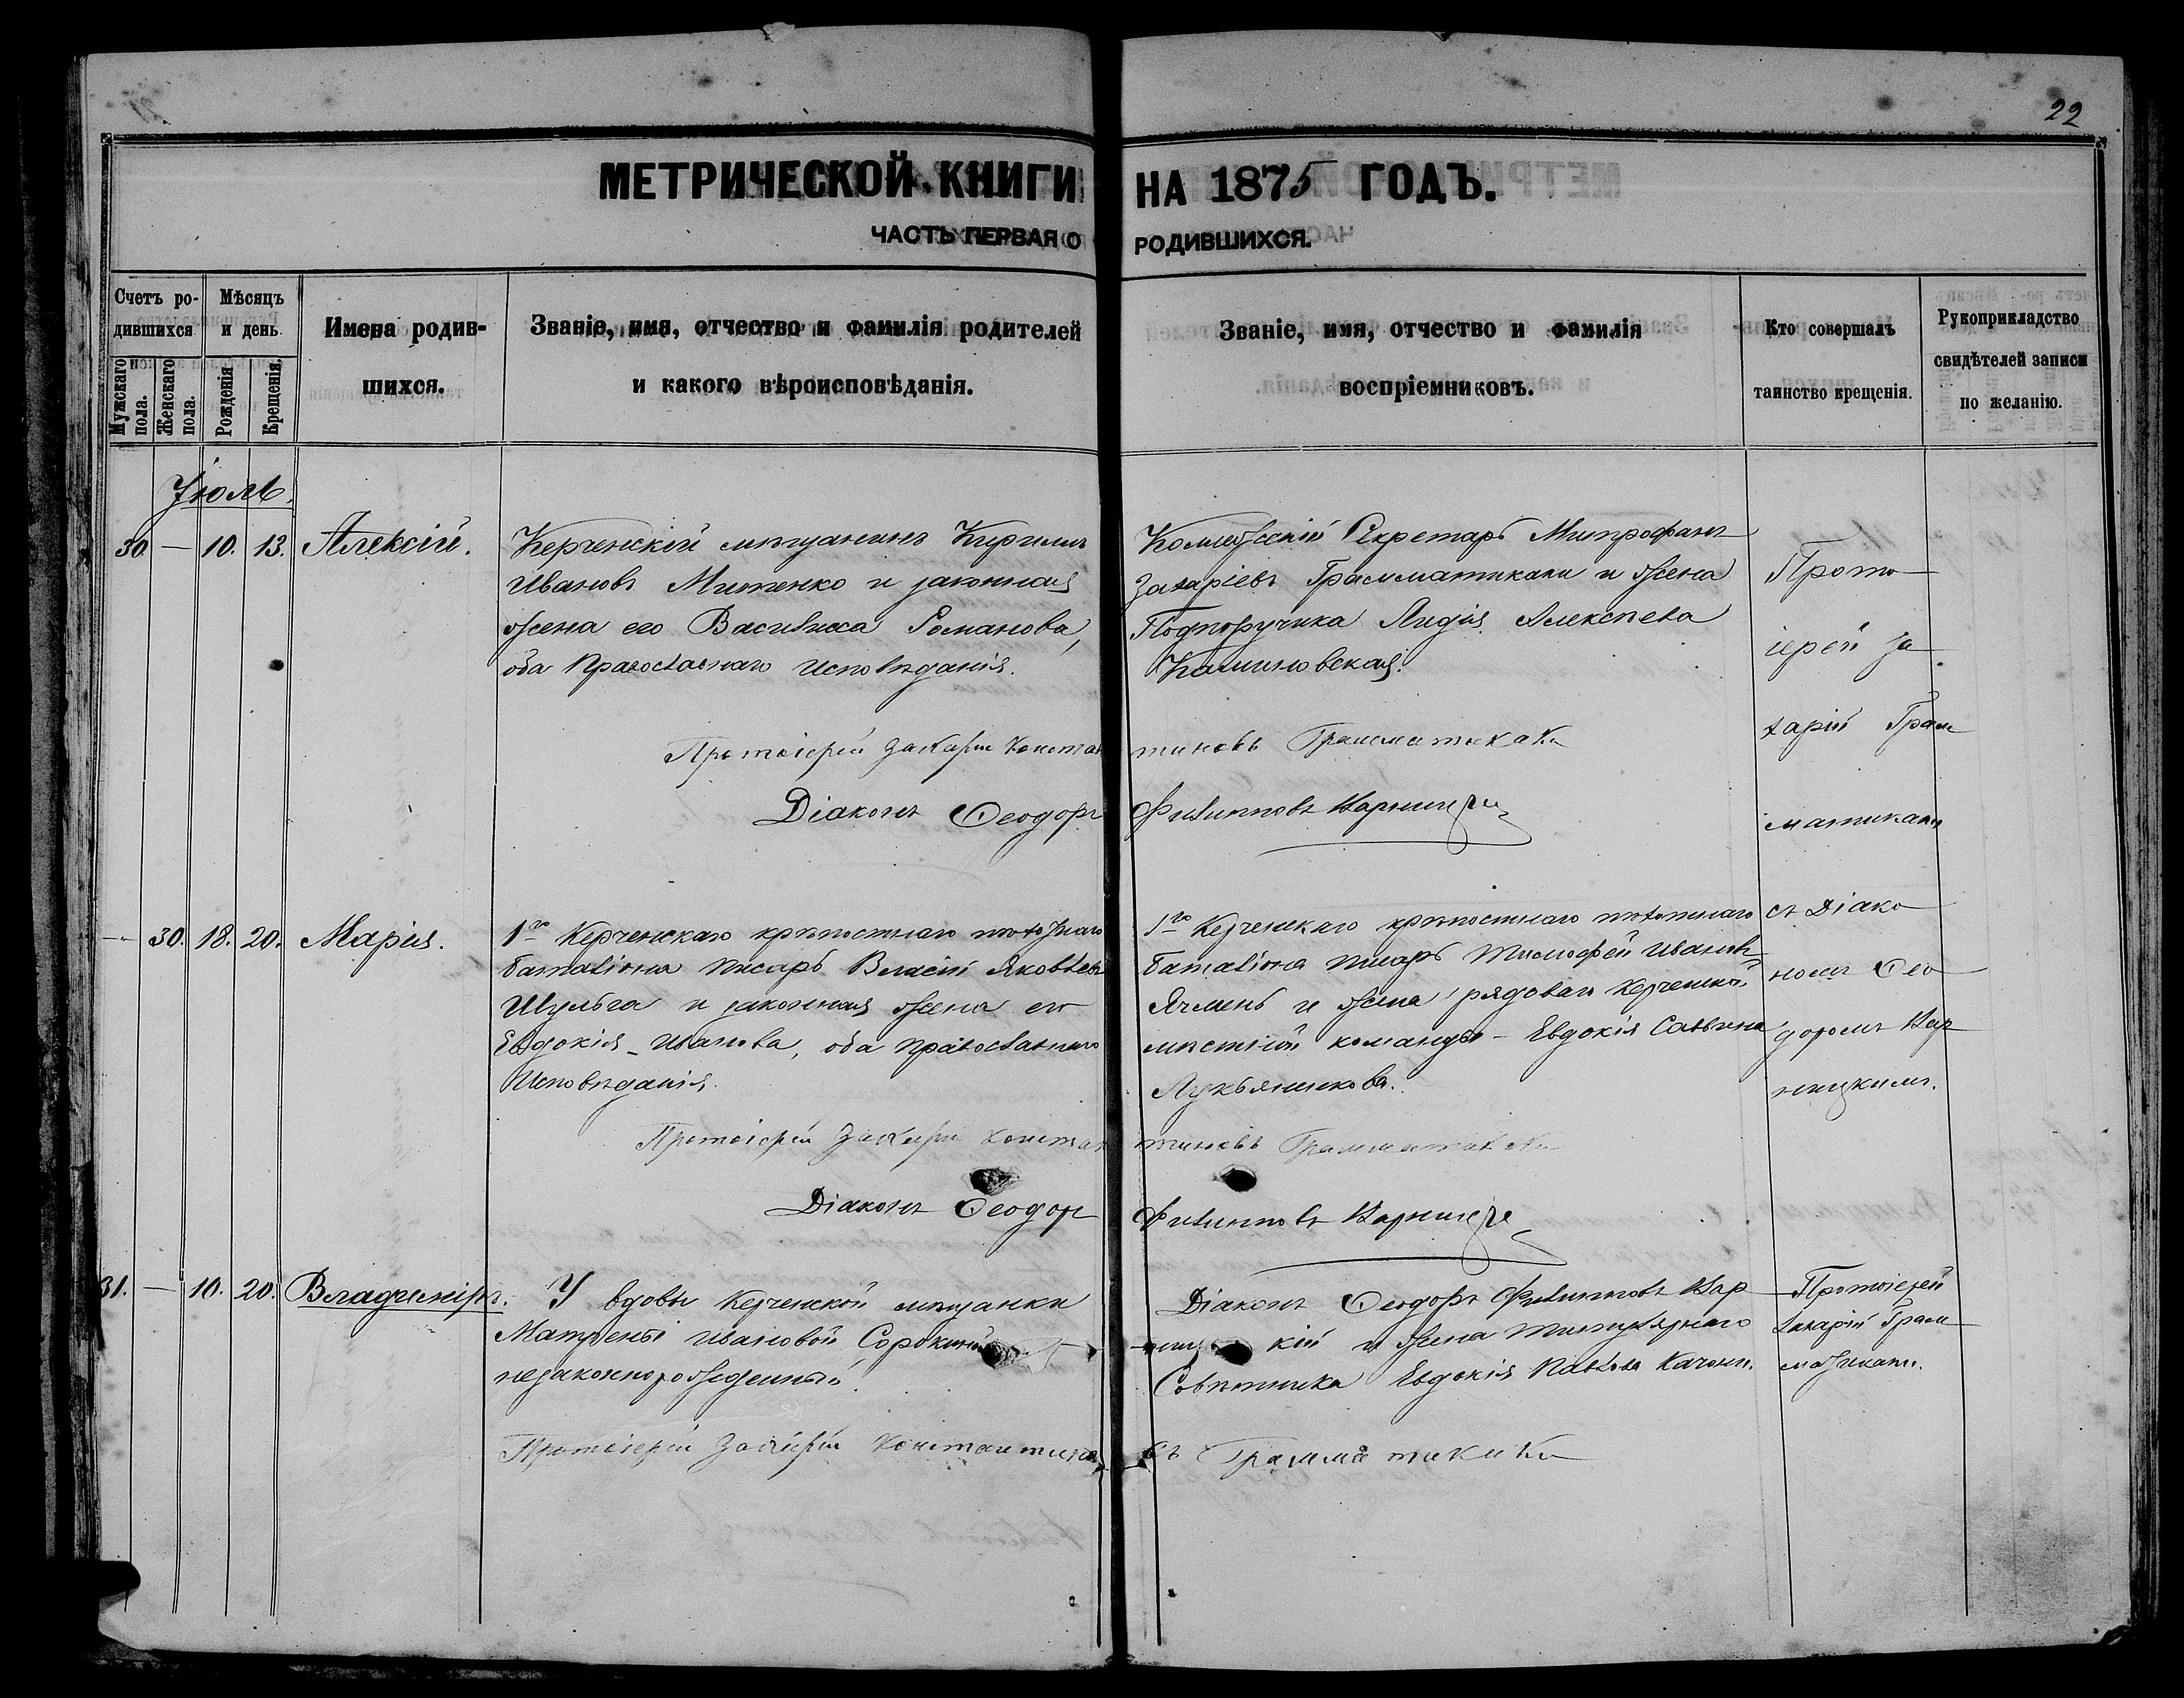 22
МЕТРИЧЕСКОЙ КНИГИ НА 1875 ГОДЪ.
ЧАСТЬ ПЕРВАЯ О РОДИВШИХСЯ.
Счетъ родившихся
Мѣсяцъ и день
Мужскаго пола.
Женскаго пола.
Рожденія
Крещенія.
Имена родившихся.
Званіе, имя, отчество и фамилія родителей
и какого вѣроисповѣданія.
Званіе, имя, отчество и фамилія
воспріемниковъ.
Кто совершалъ
таинство крещенія.
Рукоприкладство
свидѣтелей записи
по желанію.
Іюль.
30. — 10. 13. Алексій.
Керченскій мѣщанинъ Кирилъ
Ивановъ Митенко и законная
жена его Василиса Романова,
оба Православнаго исповѣданія.
Коллежскій Секретарь Митрофанъ
Захаріевъ Грамматикаки и жена
Подпоручика Лидія Алексѣева
Калиновская.
Прото
іерей За
харій Грам
матикаки
съ Діако
номъ Ѳео
доромъ Вар
ницкимъ.
Протоіерей Захарій Константиновъ Грамматикаки
Діаконъ Ѳеодоръ Филипповъ Варницкій
— 30. 18. 20. Марія.
1го Керченскаго крѣпостнаго пѣхотнаго
баталіона писарь Власій Яковлевъ
Шульга и законная жена его
Евдокія Иванова, оба православнаго
Исповѣданія.
1го Керченскаго крѣпостнаго пѣхотнаго
баталіона писарь Тимофей Ивановъ
Ячмень и жена рядоваго Керченской
мѣстной команды - Евдокія Саввина
Лукьянчикова.
Протоіерей Захарій Константиновъ Грамматикаки
Діаконъ Ѳеодоръ Филипповъ Варницкій
31. — 10. 20. Владиміръ.
У вдовы Керченской мѣщанки
Матрены Ивановой Сорокиной
незаконнорожденный.
Діаконъ Ѳеодоръ Филипповъ Вар
ницкій и жена Титулярнаго
Совѣтника Евдокія Павлова
Протоіерей
Захарій Грам
матикаки.
Протоіерей Захарій Константиновъ Грамматикаки